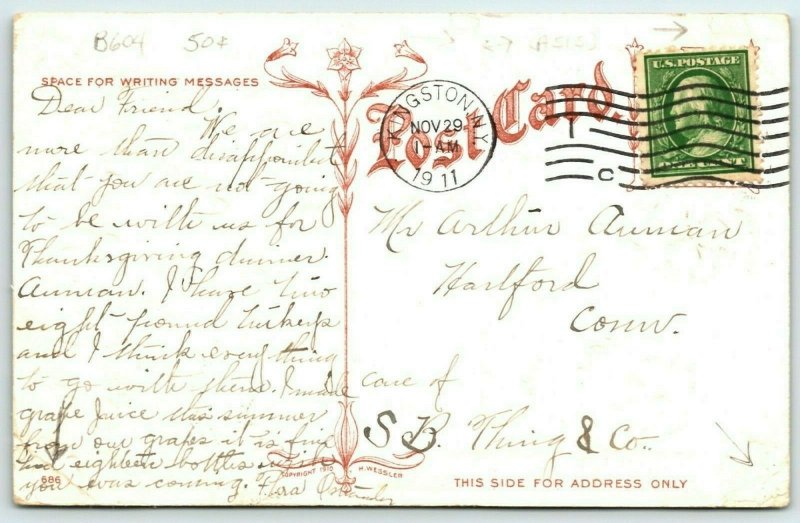 B604 50¢
SPACE FOR WRITING MESSAGES
Post Card.
KINGSTON, N.Y.
NOV 29
1-AM
1911
C
U.S. POSTAGE
Dear Friend.
We are
more than disappointed
that you are not going
to be with us for
Thanksgiving dinner.
Auman. I have two
eight pound turkeys
and I think everything
to go with them. I made
grape juice this summer
from our grapes it is fine
had eighteen bottles wish
you was coming. Flora
Mr Arthur Auman
Hartford
Conn.
care of
S B. Thing & Co.
686
COPYRIGHT 1910 H. WESSLER
THIS SIDE FOR ADDRESS ONLY